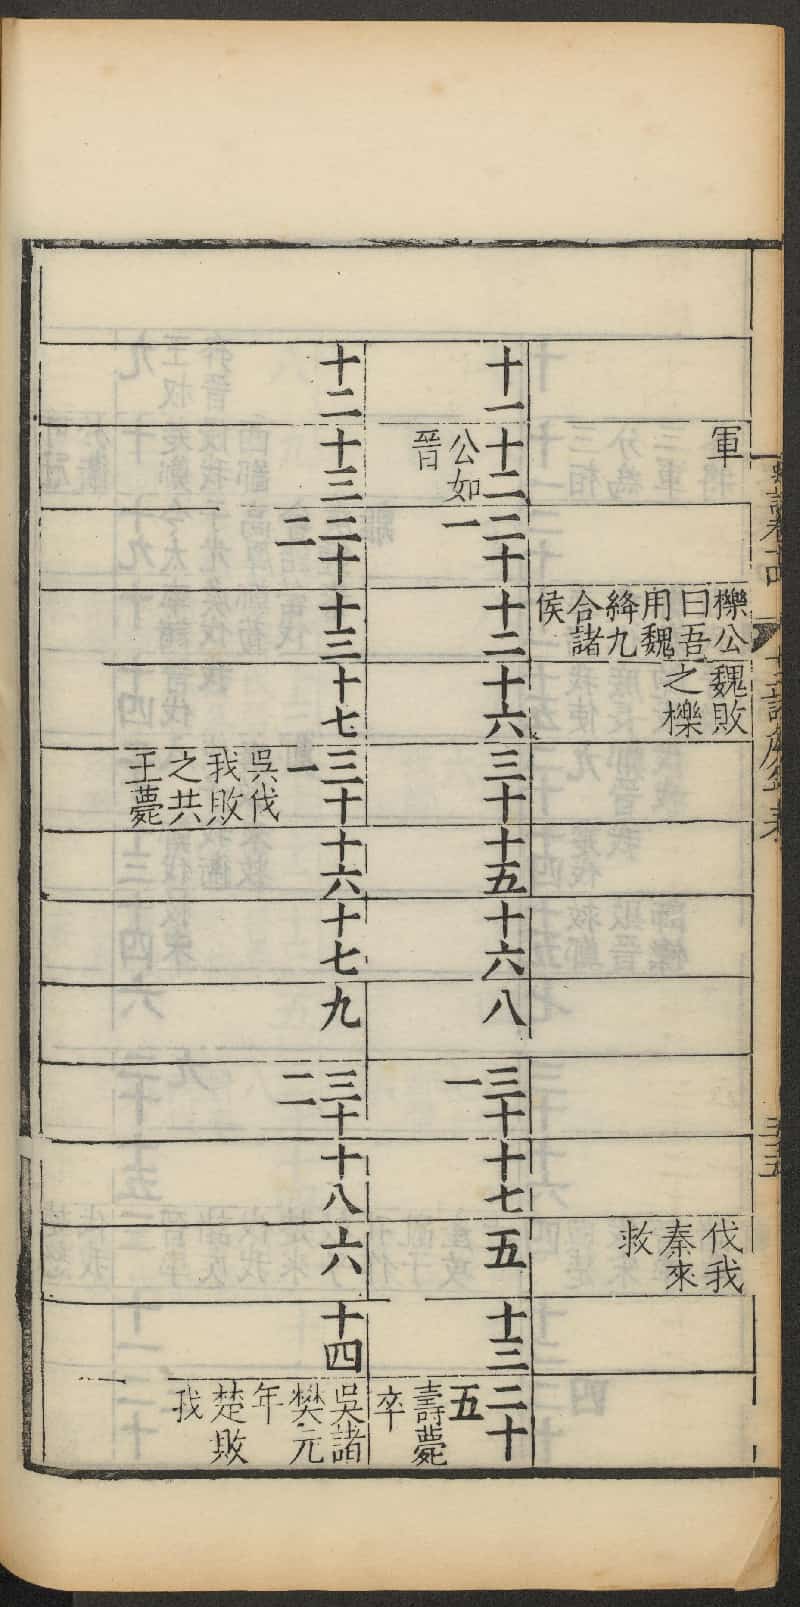 軍
櫟公
曰吾
用魏
絳九
合諸
侯
魏敗
之櫟
伐我
秦來
救
十一
十二
公如
晉
二十
一
十二
十六
三十
十五
十六
八
三十
一
十七
五
十三
二十
五
壽薨
卒
十二
十三
二十
二
十三
十七
三十
一
吳伐
我敗
之共
王薨
十六
十七
九
三十
二
十八
六
十四
吳諸
樊元
年
楚敗
我